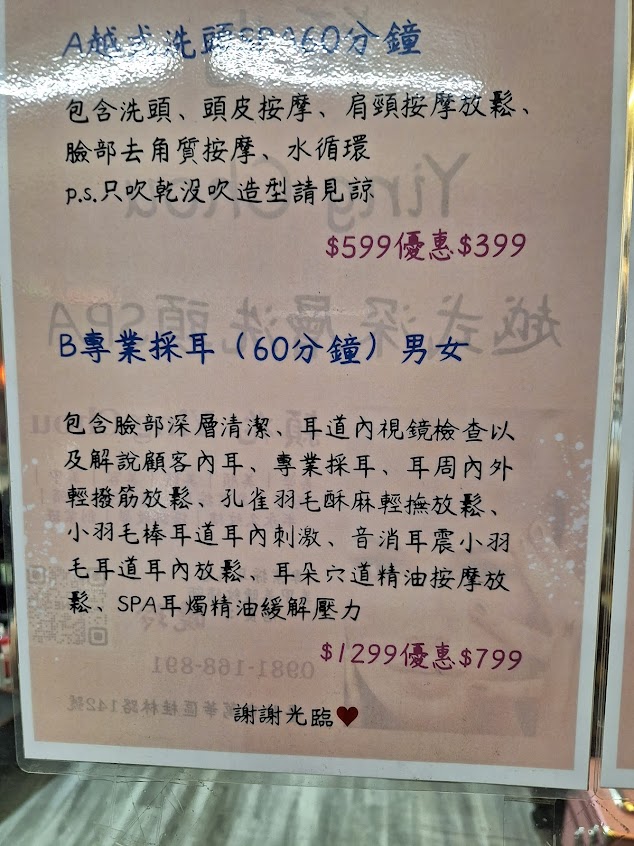 A越式洗頭SPA60分鐘
包含洗頭、頭皮按摩、肩頸按摩放鬆、
臉部去角質按摩、水循環
p.s.只吹乾沒吹造型請見諒
$599優惠$399
B專業採耳（60分鐘）男女
包含臉部深層清潔、耳道內視鏡檢查以
及解說顧客內耳、專業採耳、耳周內外
輕撥筋放鬆、孔雀羽毛酥麻輕撫放鬆、
小羽毛棒耳道耳內刺激、音消耳震小羽
毛耳道耳內放鬆、耳朵穴道精油按摩放
鬆、SPA耳燭精油緩解壓力
$1299優惠$799
謝謝光臨♥
Ying Chou
越式深層洗頭SPA
0981-168-891
華區桂林路142號